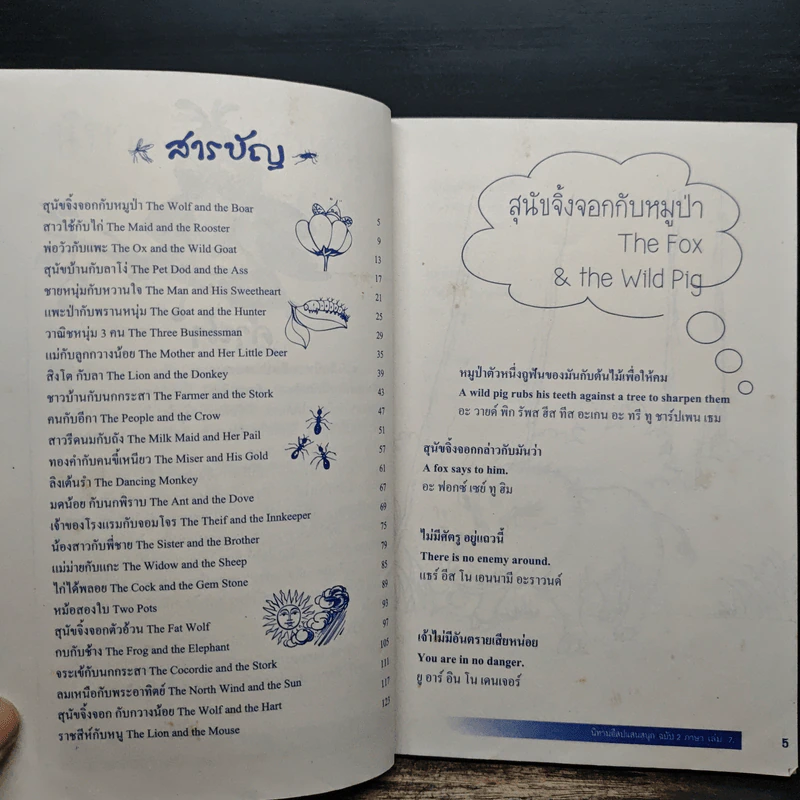 สารบัญ
สุนัขจิ้งจอกกับหมูป่า The Wolf and the Boar 5
สาวใช้กับไก่ The Maid and the Rooster 9
พ่อวัวกับแพะ The Ox and the Wild Goat 13
สุนัขบ้านกับลาโง่ The Pet Dod and the Ass 17
ชายหนุ่มกับหวานใจ The Man and His Sweetheart 21
แพะป่ากับพรานหนุ่ม The Goat and the Hunter 25
วาณิชหนุ่ม 3 คน The Three Businessman 29
แม่กับลูกกวางน้อย The Mother and Her Little Deer 35
สิงโต กับลา The Lion and the Donkey 39
ชาวบ้านกับนกกระสา The Farmer and the Stork 43
คนกับอีกา The People and the Crow 47
สาวรีดนมกับถัง The Milk Maid and Her Pail 51
ทองคำกับคนขี้เหนียว The Miser and His Gold 57
ลิงเต้นรำ The Dancing Monkey 61
มดน้อย กับนกพิราบ The Ant and the Dove 67
เจ้าของโรงแรมกับจอมโจร The Theif and the Innkeeper 69
น้องสาวกับพี่ชาย The Sister and the Brother 75
แม่ม่ายกับแกะ The Widow and the Sheep 79
ไก่ได้พลอย The Cock and the Gem Stone 85
หม้อสองใบ Two Pots 89
สุนัขจิ้งจอกตัวอ้วน The Fat Wolf 93
กบกับช้าง The Frog and the Elephant 97
จระเข้กับนกกระสา The Cocordie and the Stork 105
ลมเหนือกับพระอาทิตย์ The North Wind and the Sun 111
สุนัขจิ้งจอก กับกวางน้อย The Wolf and the Hart 117
ราชสีห์กับหนู The Lion and the Mouse 123
สุนัขจิ้งจอกกับหมูป่า
The Fox
& the Wild Pig
หมูป่าตัวหนึ่งถูฟันของมันกับต้นไม้เพื่อให้คม
A wild pig rubs his teeth against a tree to sharpen them
อะ วายด์ พิก รัพส ฮีส ทีส อะเกน อะ ทรี ทู ชาร์ปเพน เธม
สุนัขจิ้งจอกกล่าวกับมันว่า
A fox says to him.
อะ ฟอกซ์ เซย์ ทู ฮิม
ไม่มีศัตรู อยู่แถวนี้
There is no enemy around.
แธร์ อีส โน เอนนามี อะราวนด์
เจ้าไม่มีอันตรายเสียหน่อย
You are in no danger.
ยู อาร์ อิน โน เดนเจอร์
นิทานอีสปแสนสนุก ฉบับ 2 ภาษา เล่ม 7
5